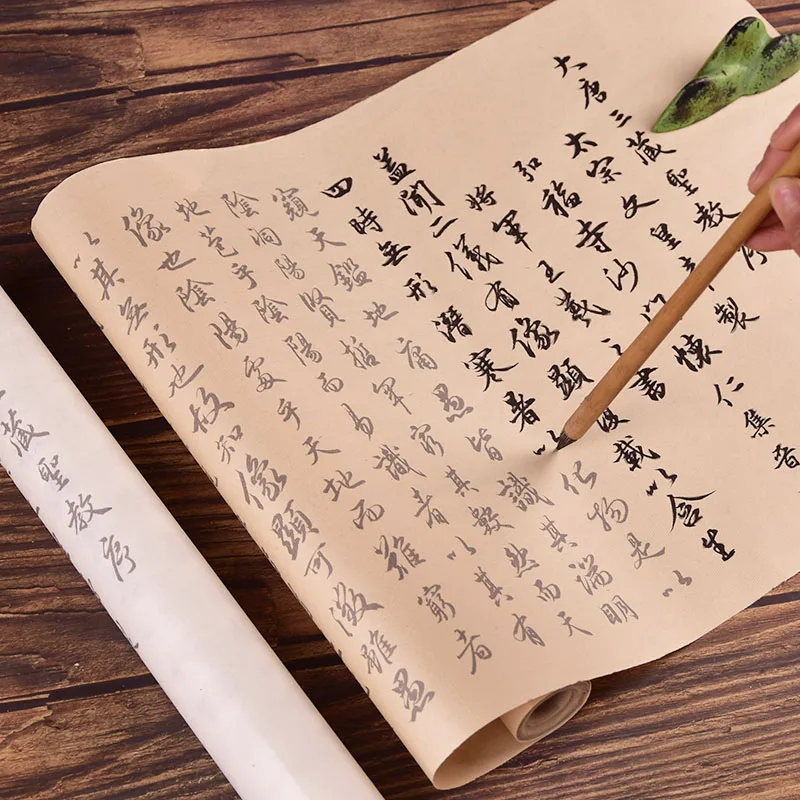 大唐三藏聖教序
太宗文皇製
弘福寺沙門懷仁集晉
將軍王羲之書
蓋聞二儀有像顯覆載以含生
四時無形潛寒暑以化物是以
窺天鑑地庸愚皆識其端明
陰洞陽賢哲罕窮其數然而天
地苞乎陰陽而易識者以其有
像也陰陽處乎天地而難窮者
以其無形也故知像顯可徵雖愚
藏聖教序